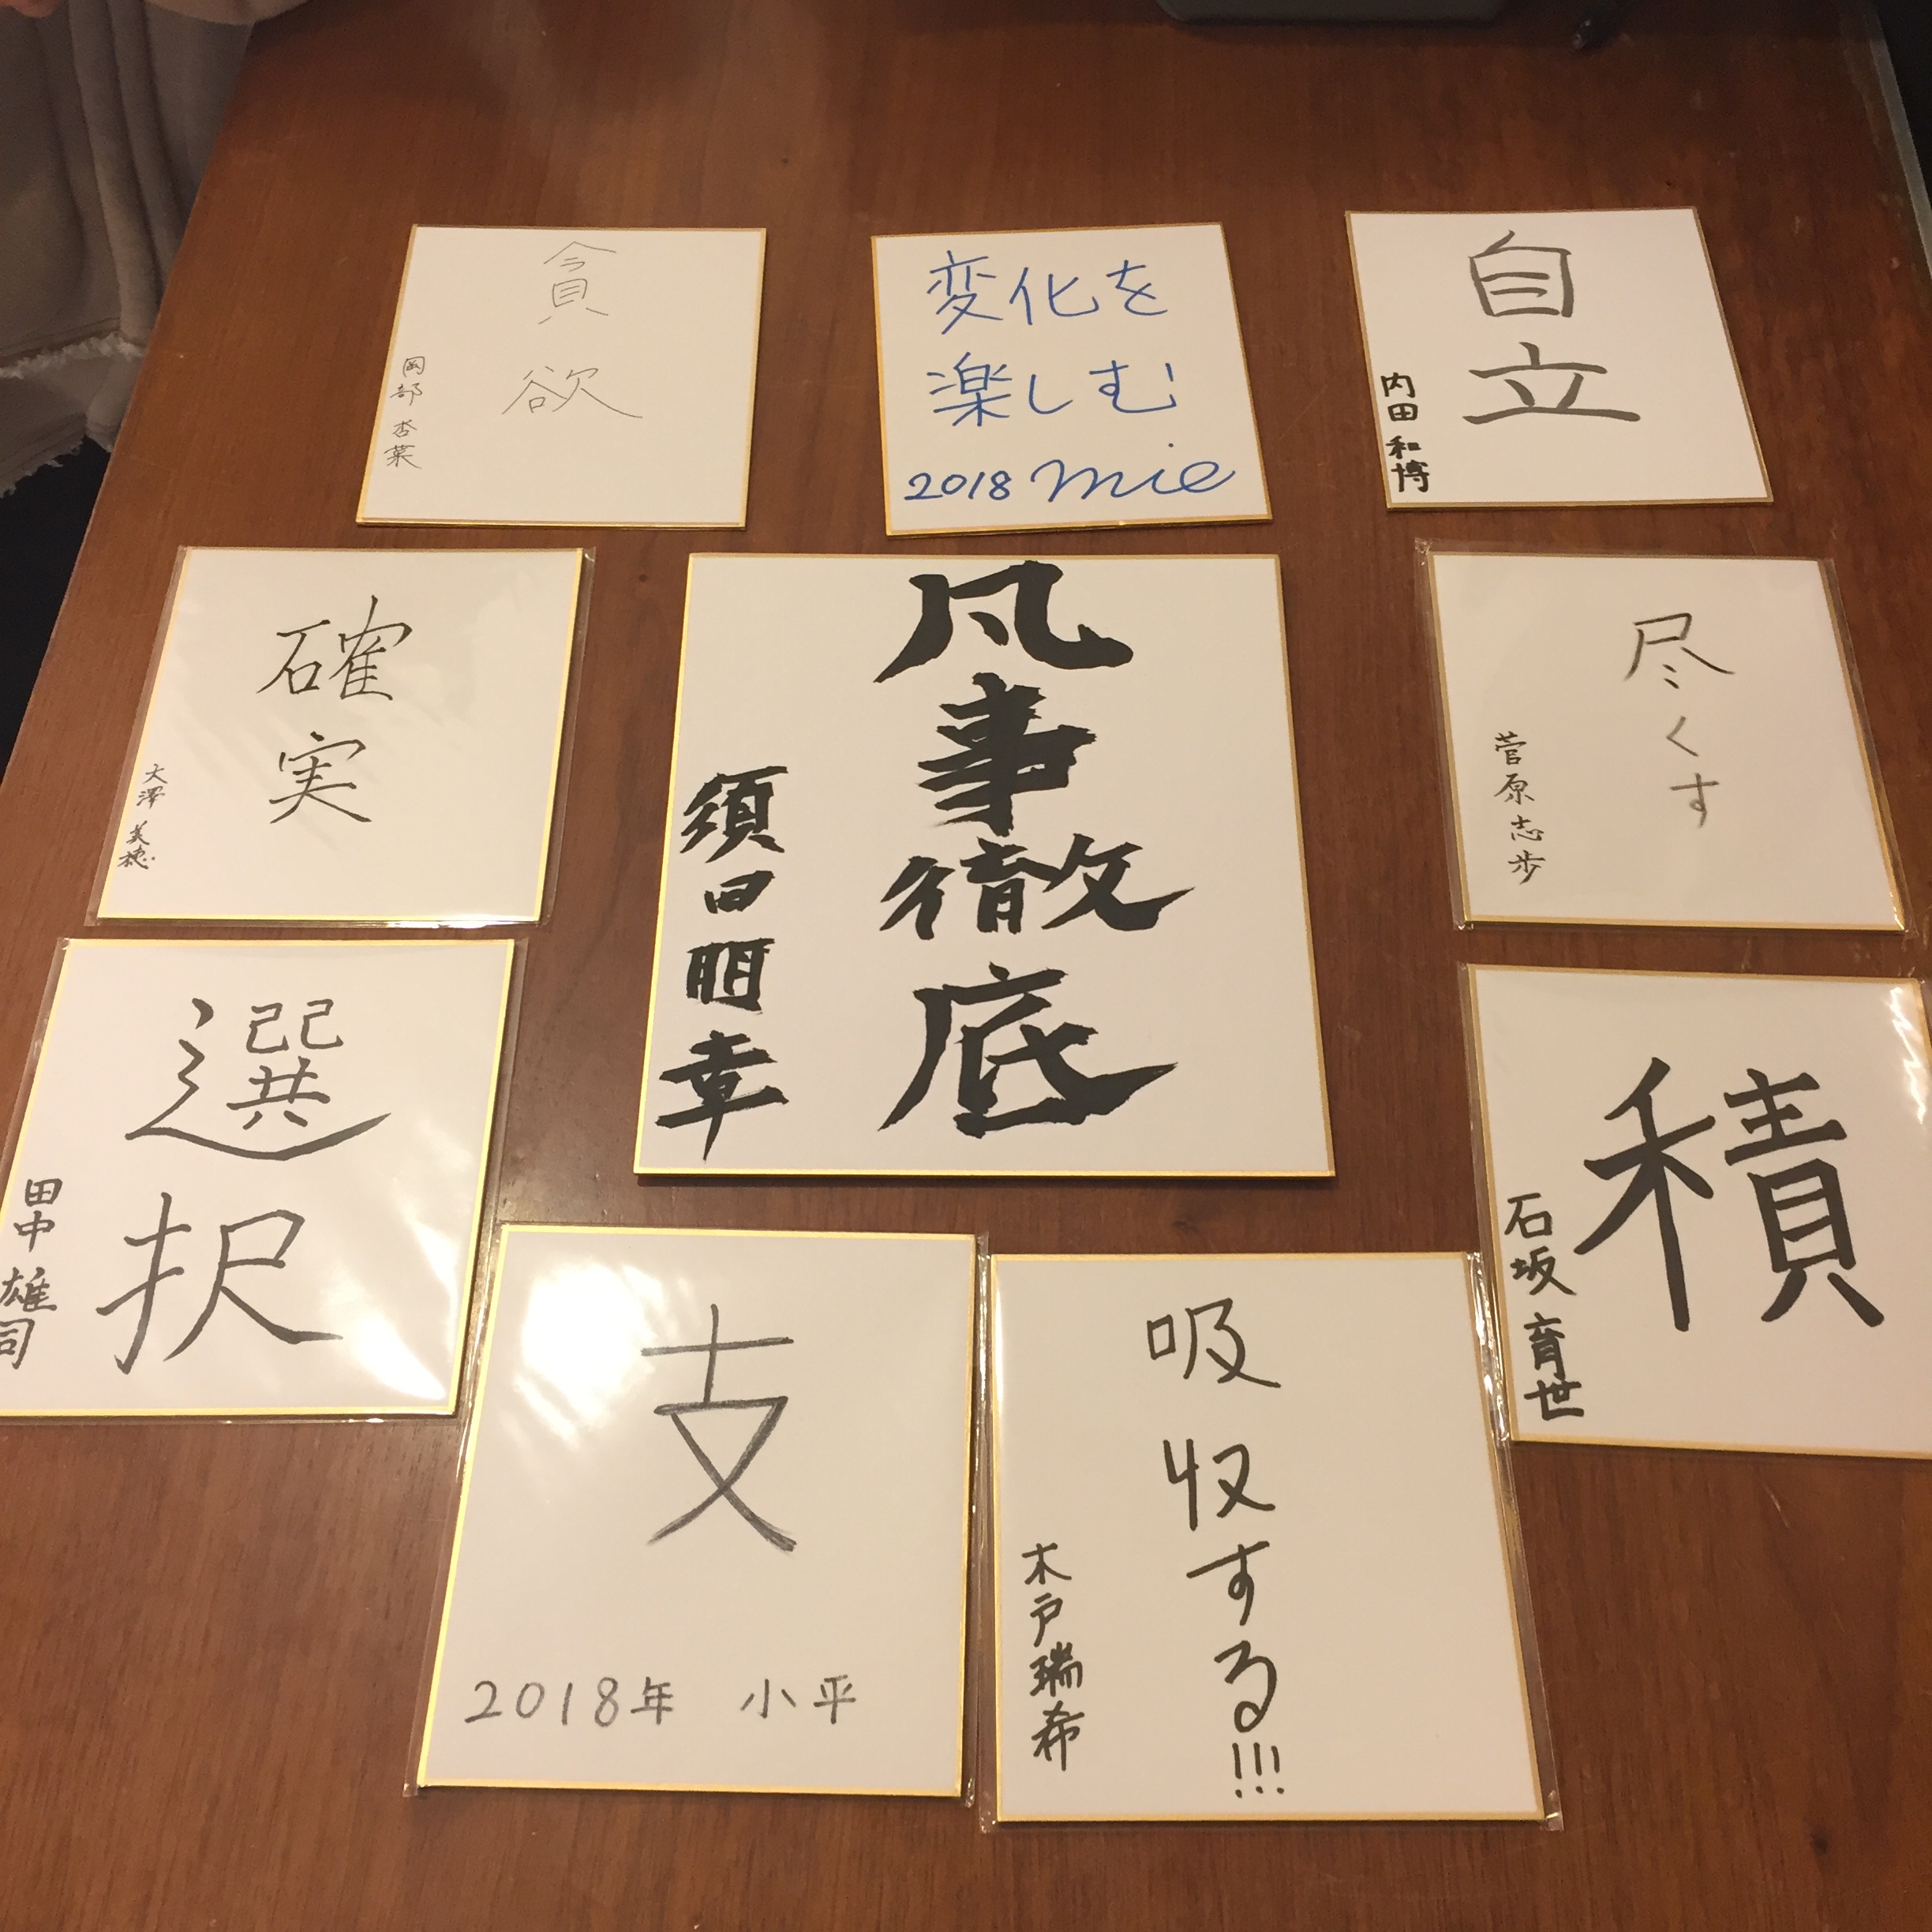 貪欲
岡部 杏菜
変化を
楽しむ
2018 mie
自立
内田和博
確実
大澤 美穂
凡事徹底
須田明幸
尽くす
菅原志歩
選択
田中 雄司
積
石坂育世
支
2018年 小平
吸収する!!!
木戸瑞希